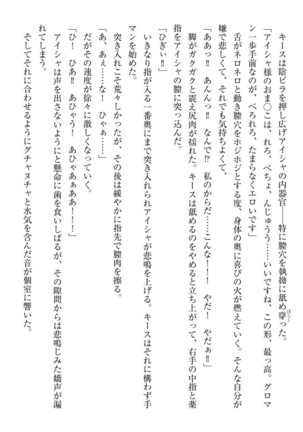 キースは陰ビラを押し広げアイシャの内器官――特に膣穴を執拗に舐め穿った。
「アイシャ様のおま〇こは、れろ、ぺちょ、んじゅうう……いいですね、この形、最っ高。グロマ
ン一歩手前なのが、べろれろ、たまらなくエロいです」
舌がネロネロと動き膣穴をホジホジとする度、身体の奥に喜びの火が燃えていく。そんな自分が
嫌で悲しくて、それでも気持ちよくて、
「ああっ‼ あんっ‼ なんで⁉ 私のからだ……こんな！！ やだ！ やだぁ‼」
脚がガクガクと震え尻肉が揺れた。キースは舐めるのをやめると立ち上がって、右手の中指と薬
指をアイシャの膣に突っ込んだ。
「ひぎぃ‼」
いきなり指が入る一番奥にまで突き入れられアイシャが悲鳴を上げる。キースはそれに構わず手
マンを始めた。
突き入れこそ荒々しかったが、その後は緩やかに指先で膣肉を擦る。
「あ、あぁ……な！ ひゃぁ……」
だがその速度が徐々に激しくなっていく。
「ひ！ ひあ！ ひゃあぁああ！」
アイシャは声を出さないようにと懸命に歯を食いしばるが、その隙間からは悲鳴じみた嬌声が漏
れてしまう。
そしてそれに合わせるようにグチャヌチャと水気を含んだ音が個室に響いた。